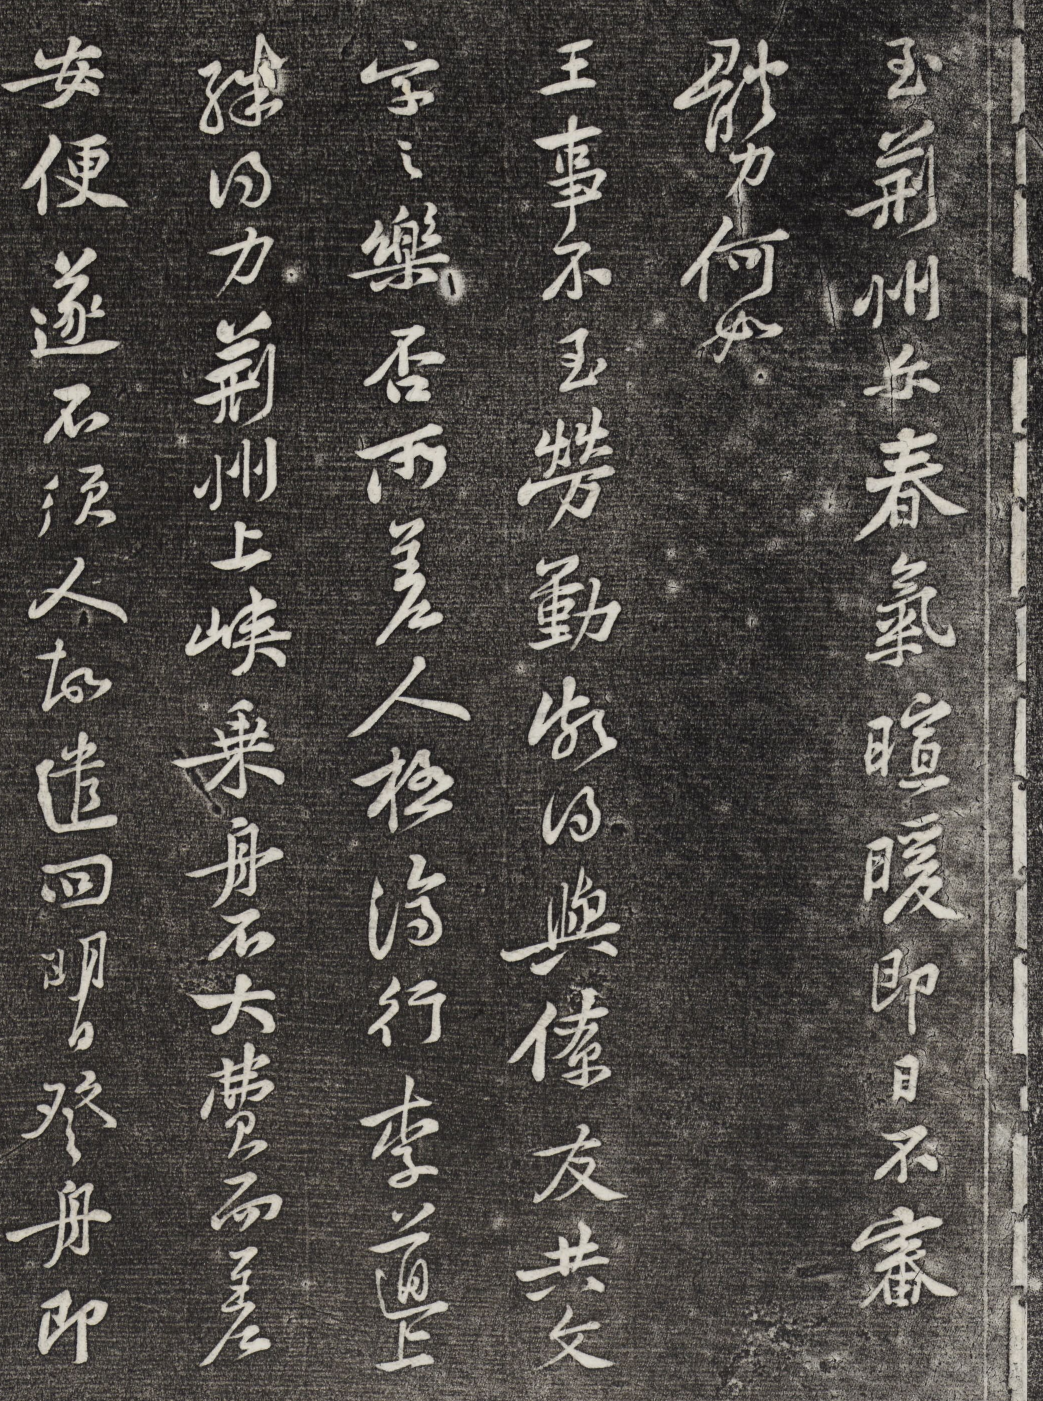 至荊州春氣暄暖即日不審
體力何如
王事不至勞勤頗得與僚友共文
字之樂否所差人極濟行李道上
殊得力荊州上峽乘舟不大費而差
安便遂不須人故遣回明日登舟即